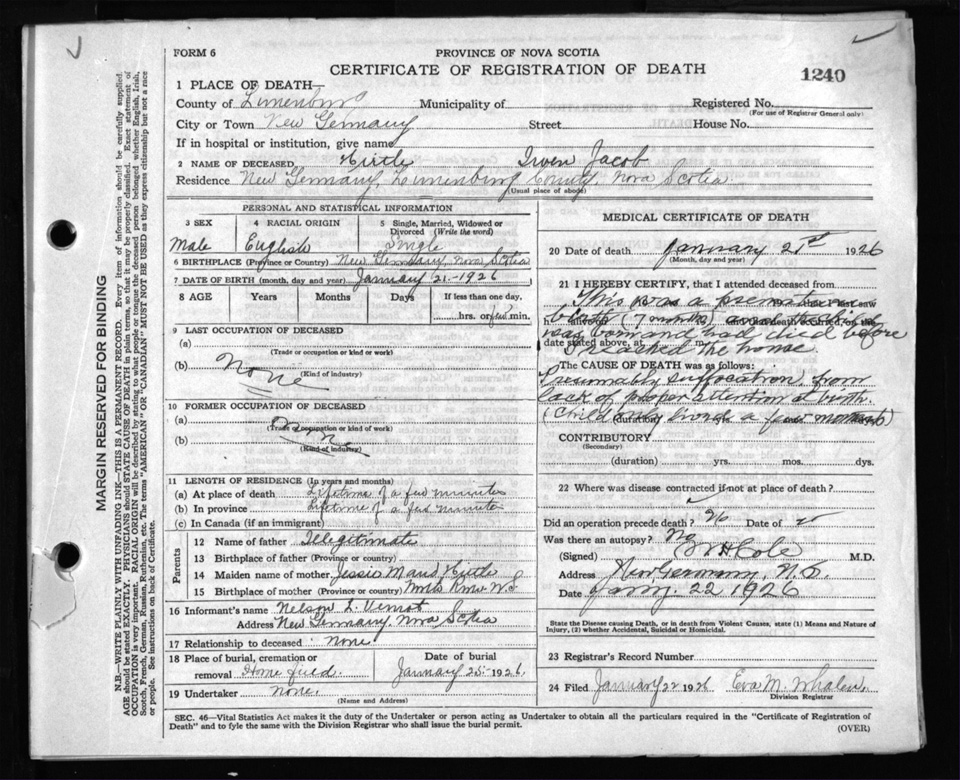 FORM 6
PROVINCE OF NOVA SCOTIA
CERTIFICATE OF REGISTRATION OF DEATH
1240
1 PLACE OF DEATH—
County of Lunenburg Municipality of Registered No.
(For use of Registrar General only)
City or Town New Germany Street House No.
If in hospital or institution, give name
2 NAME OF DECEASED Hirtle Irven Jacob
Residence New Germany, Lunenburg County, Nova Scotia.
(Usual place of abode)
PERSONAL AND STATISTICAL INFORMATION
3 SEX 4 RACIAL ORIGIN 5 Single, Married, Widowed or Divorced (Write the word)
Male English Single
6 BIRTHPLACE (Province or Country) New Germany, Nova Scotia
7 DATE OF BIRTH (month, day and year) January 21-1926
8 AGE Years Months Days If less than one day,
hrs. or few min.
9 LAST OCCUPATION OF DECEASED
(a)
(Trade or occupation or kind of work)
(b) None
(Kind of industry)
10 FORMER OCCUPATION OF DECEASED
(a) None
(Trade or occupation or kind of work)
(b)
(Kind of industry)
11 LENGTH OF RESIDENCE (In years and months)
(a) At place of death Lifetime of a few minutes
(b) In province Lifetime of a few minutes
(c) In Canada (if an immigrant)
Parents
12 Name of father Illegitimate
13 Birthplace of father (Province or country)
14 Maiden name of mother Jessie Maud Hirtle
15 Birthplace of mother (Province or country) N.S
16 Informant's name Nelson L. Veinot
Address New Germany, Nova Scotia
17 Relationship to deceased none
18 Place of burial, cremation or removal Home field Date of burial January 25-1926.
19 Undertaker none.
(Name and Address)
MEDICAL CERTIFICATE OF DEATH
20 Date of death January 21st 1926
(Month, day and year)
21 I HEREBY CERTIFY, that I attended deceased from
This was a premature
birth (7 months) and the child
was born and had died before
date stated above, at m.
I reached the house
The CAUSE OF DEATH was as follows:
Presumably suffocation, from
lack of proper attention at birth.
(Child only lived a few moments)
(duration) yrs. mos. ds.
CONTRIBUTORY
(Secondary)
(duration) yrs. mos. dys.
22 Where was disease contracted if not at place of death?
Did an operation precede death? No Date of
Was there an autopsy? No
(Signed) W H Cole M.D.
Address New Germany, N.S.
Date Jany. 22 1926
State the Disease causing Death, or in death from Violent Causes, state (1) Means and Nature of Injury, (2) whether Accidental, Suicidal or Homicidal.
23 Registrar's Record Number
24 Filed January 22 1926 Eva M. Whalen.
Division Registrar
SEC. 46—Vital Statistics Act makes it the duty of the Undertaker or person acting as Undertaker to obtain all the particulars required in the "Certificate of Registration of
Death" and to fyle the same with the Division Registrar who shall issue the burial permit.
(OVER)
MARGIN RESERVED FOR BINDING
N.B.—WRITE PLAINLY WITH UNFADING INK—THIS IS A PERMANENT RECORD. Every item of information should be carefully supplied.
AGE should be stated EXACTLY. PHYSICIANS should STATE CAUSE OF DEATH in plain terms, so that it may be properly classified. Exact statement of
OCCUPATION is very important. RACIAL ORIGIN will be described by stating to what people or tongue the deceased person belonged whether English, Irish,
Scotch, French, German, Russian, Ruthenian, etc. The terms "AMERICAN" OR "CANADIAN" MUST NOT BE USED as they express citizenship but not a race
or people. See instructions on back of Certificate.